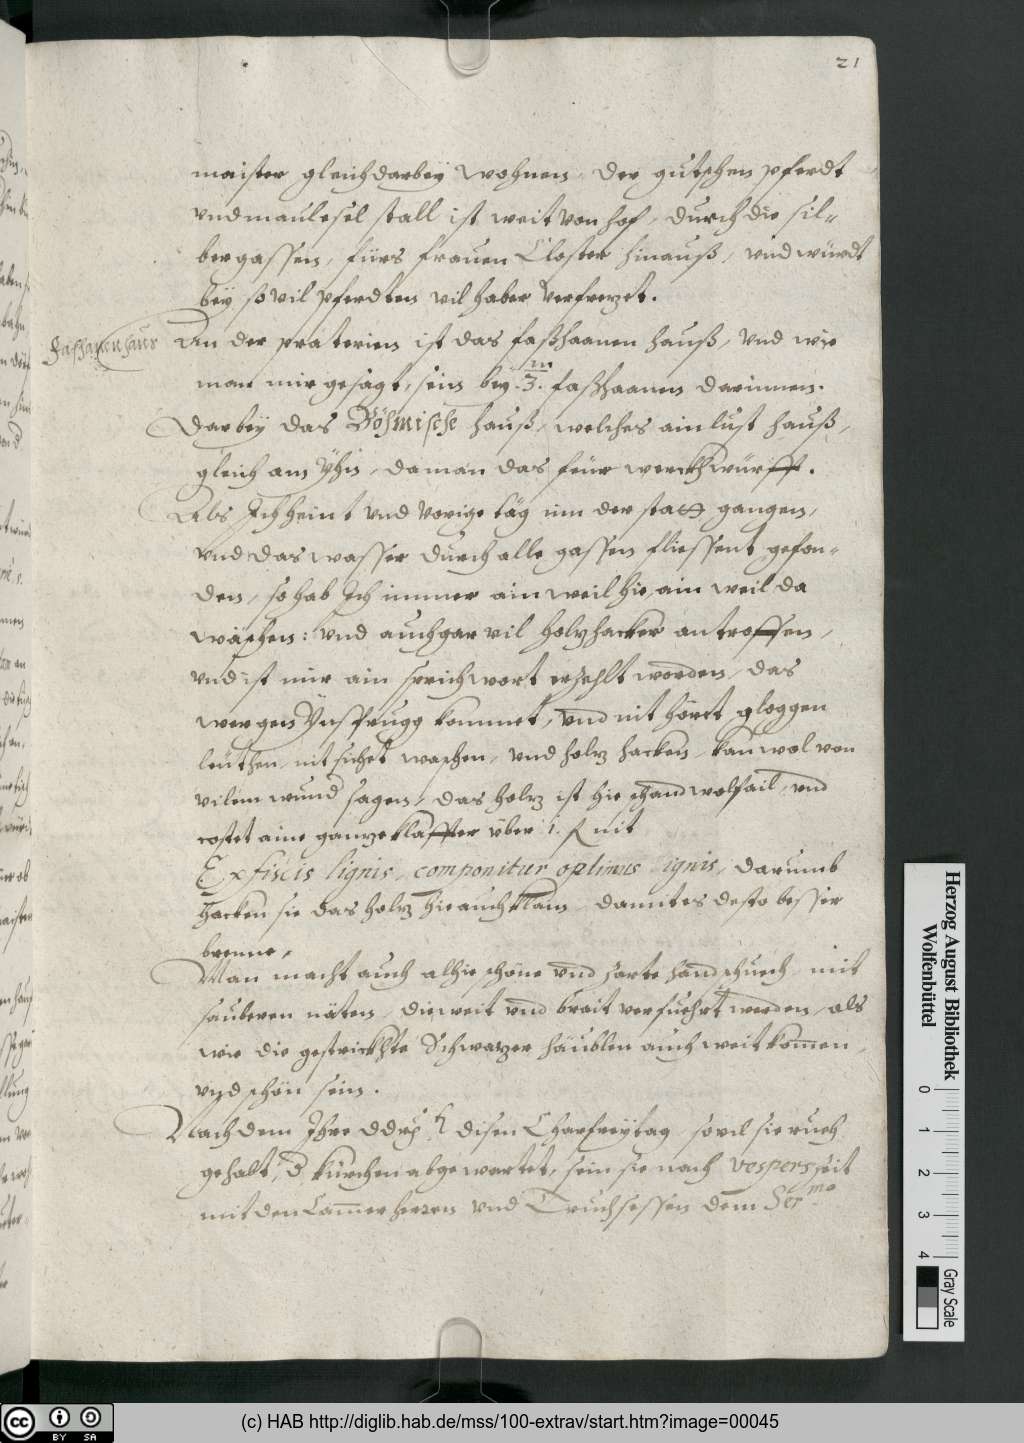 21
maister gleich darbey wohnen. Der gutschen pferdt
vnd maulesel stall ist weit von hof, durch die sil-
bergassen, fürs frauen Closter hinauß, vnd würdt
bey so vil pferdten vil haber verfrezet.
Fasshanenhaus
An der praterien ist das fasshaanen hauß, vnd wie
man mir gesagt, sein bey .3.m fasshaanen darinnen.
Darbey das Böhmische hauß, welches ain lust hauß,
gleich am Yhin, da man das feur werckh würfft.
Als Ich heint vnd vorige täg inn der statt gangen,
vnd das wasser durch alle gassen fliessent gefon-
den, so hab Ich immer ain weil hie, ain weil da
wäschen: vnd auch gar vil holzhacker antroffen,
vnd ist mir ain sprichwort erzehlt worden, das
wer gen Ynsprugg kommet, vnd nit höret gloggen
leuthen, nit sichet waschen, vnd holz hacken, kan wol von
vilem wund sagen, das holz ist hie schand wolfail, vnd
costet aine ganze klaffter über 1. f. nit
Ex fiscis lignis, componitur optimus ignis, darumb
hacken sie das holz hie auch klain, damit es desto besser
brenne.
Man macht auch alhie schöne vnd zarte handschuech, mit
sauberen näten, die weit vnd brait verfuehrt werden, als
wie die gestrickhte Schwazer häublen auch weit kommen,
vnd schön sein.
Nach dem Ihre ddrch. disen Charfreytag, so vil sie ruch
gehalt, d. kürchen abgewartet, sein sie nach vesperszeit
mit den Camerherren vnd Truchsessen dem Sermo
Herzog August Bibliothek
Wolfenbüttel
0 1 2 3 4
Gray Scale
cc BY SA
(c) HAB http://diglib.hab.de/mss/100-extrav/start.htm?image=00045